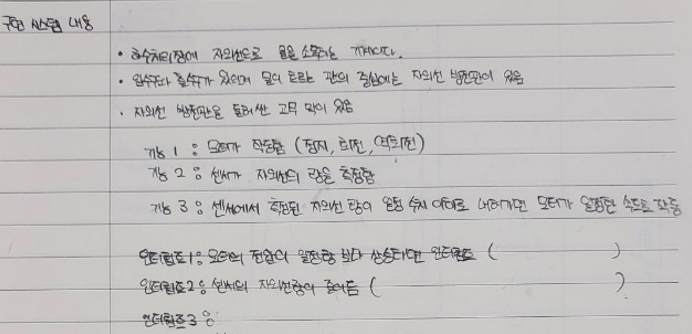 구현 시스템 내용
• 하수처리장에 자외선으로 물을 소독하는 기계이다.
• 입수구와 출수구가 있으며 물이 흐르는 관의 중심에는 자외선 방전관이 있음
• 자외선 방전관을 둘러싼 고무 막이 있음
기능 1 : 모터가 작동함 (정지, 회전, 역회전)
기능 2 : 센서가 자외선의 량을 측정함
기능 3 : 센서에서 측정된 자외선 량이 일정 수치 이하로 내려가면 모터가 일정한 속도로 작동
인터럽트1: 모터의 전압이 일정량 보다 상승하면 인터럽트 ( )
인터럽트2: 센서의 자외선량이 줄어듬 ( )
인터럽트3 :